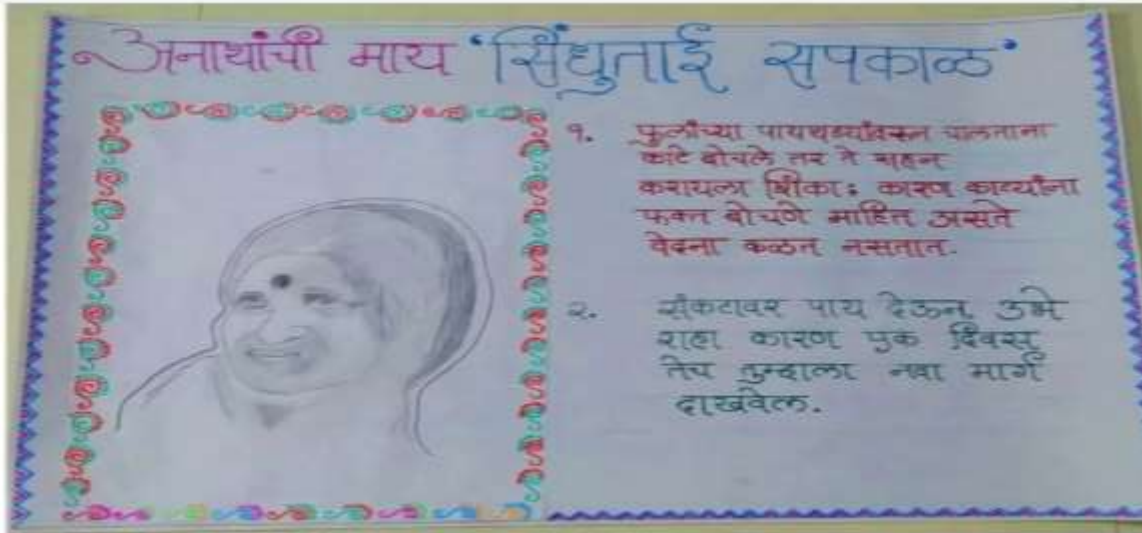 अनाथांची माय 'सिंधुताई सपकाळ'
१. फुलांच्या पायघड्यांवरून चालताना
काटे बोचले तर ते सहन
करायला शिका; कारण काट्यांना
फक्त बोचणे माहित असते
वेदना कळत नसतात.
२. संकटावर पाय देऊन उभे
राहा कारण एक दिवस
तेच तुम्हाला नवा मार्ग
दाखवेल.